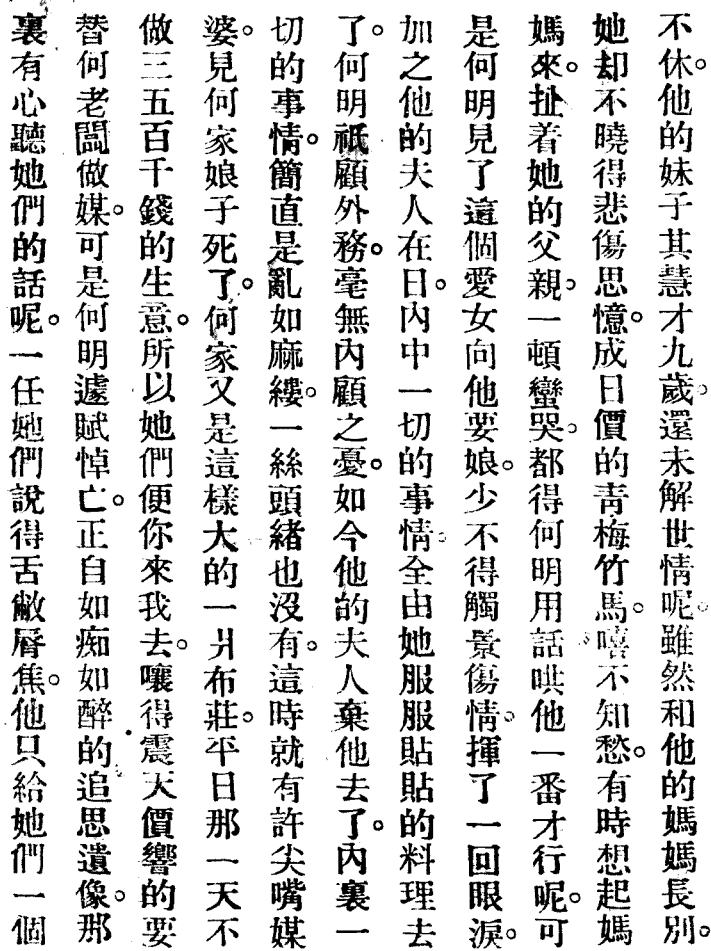 不休。他的妹子其慧才九歲。還未解世情呢。雖然和他的媽媽長別。
她却不曉得悲傷思憶。成日價的靑梅竹馬。嘻不知愁。有時想起媽
媽來。扯着她的父親。一頓蠻哭。都得何明用話哄他一番才行呢。可
是何明見了這個愛女向他要娘。少不得觸景傷情。揮了一回眼淚。
加之他的夫人在日。內中一切的事情。全由她服服貼貼的料理去
了。何明祗顧外務。毫無內顧之憂。如今他的夫人棄他去了。內裏一
切的事情。簡直是亂如麻縷。一絲頭緒也沒有。這時就有許尖嘴媒
婆。見何家娘子死了。何家又是這樣大的一爿布莊。平日那一天不
做三五百千錢的生意。所以她們便你來我去。嚷得震天價響的要
替何老闆做媒。可是何明遽賦悼亡。正自如痴如醉的追思遺像。那
裏有心聽她們的話呢。一任她們說得舌敝脣焦。他只給她們一個